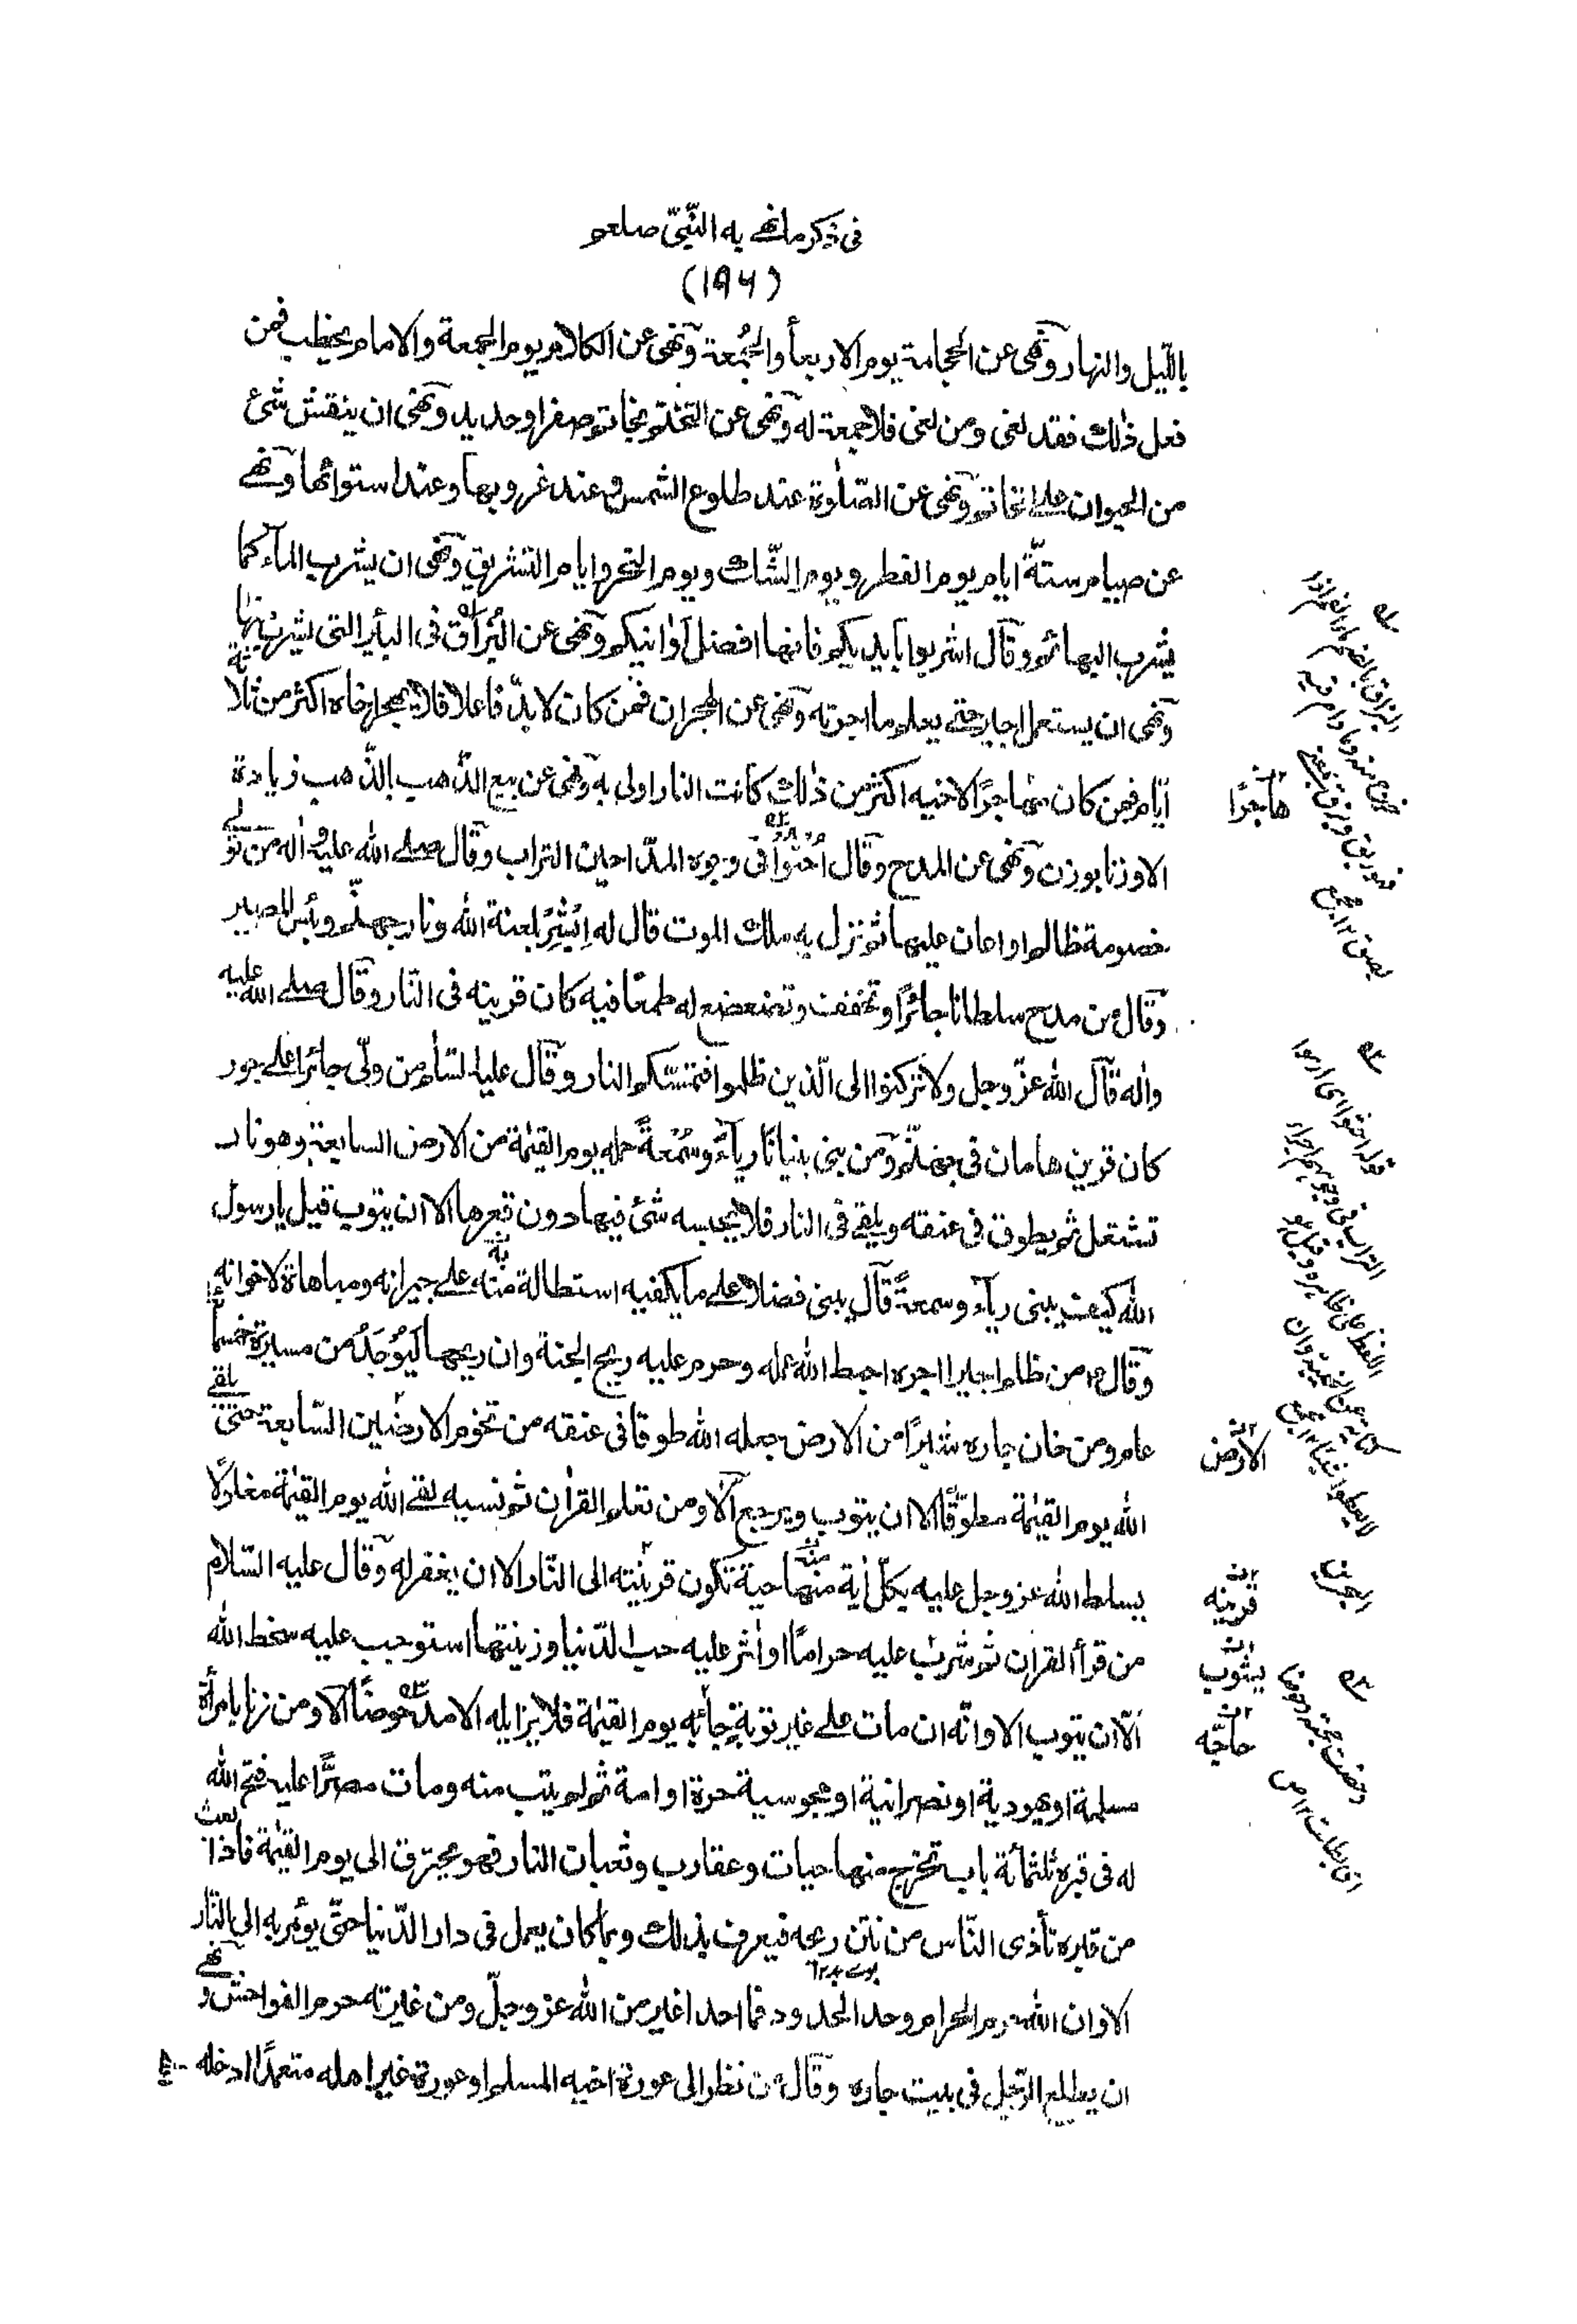 فى ذكر ما نهى به النّبىّ صلعم
(١٨٦)
بالليل والنهار ونهى عن الحجامة يوم الاربعأ والجُمُعة ونهى عن الكلام يوم الجمعة والامام يخطب فمن
فعل ذٰلك فقد لغى ومن لغى فلا جمعة له ونهى عن التختّم بخاتم صفر او حديد ونهى ان ينقش شئ
من الحيوان على الخاتم ونهى عن الصّلوة عند طلوع الشمس وعند غروبها وعند استوائها ونهى
عن صيام ستّة ايام يوم الفطر ويوم الشّك ويوم النحر وايام التشريق ونهى ان يشرب المآء كما
يشرب البهائم وقال اشربوا بايديكم فانها افضل اوانيكم ونهى عن البُزاق فى البأير التى يشرب منها
ونهى ان يستعمل اجير حتى يعلم ما اجرته ونهى عن الهجران فمن كان لا بدّ فاعلا فلا يهجر اخاه اكثر من ثلاثة
ايّام فمن كان مهاجرًا لاخيه اكثر من ذٰلك كانت النار اولى به ونهى عن بيع الذّهب بالذّهب زيادة
الا وزنا بوزن ونهى عن المدح وقال اُحثوا فى وجوه المدّاحين التراب وقال صلى الله عليه واٰله من تولى
خصومة ظالم او اعان عليها ثم نزل به ملك الموت قال له اِبْشِرْ بلعنة الله ونار جهنّم وبئس المصير
وقال من مدح سلطانا جائرًا وتخفف وتضعضع له طمعًا فيه كان قرينه فى النّار وقال صلى الله عليه
واٰله قال الله عزّ وجل ولا تركنوا الى الّذين ظلموا فتمسّكم النار وقال عليه السّلام من ولّى جائرا على جور
كان قرين هامان فى جهنّم ومن بنى بنيانًا ريآءً وسُمْعةً حمله يوم القيٰمة من الارض السابعة وهو نار
تشتعل ثم يطوق فى عنقه ويلقى فى النار فلا يحبسه شئ فيها دون قعرها الا ان يتوب قيل يا رسول
الله كيف يبنى ريآء وسمعةً قال يبنى فضلا على ما يكفيه استطالة منه على جيرانه ومباهاة لاخوانه
وقال ع من ظلم اجيرا اجره احبط الله عمله وحرم عليه ريح الجنة وان ريحها ليُوْجَدُ من مسيرة خمسمائة
عام ومن خان جاره شبرًا من الارض جعله الله طوقا فى عنقه من تخوم الارضين السّابعة حتى يلقى
الله يوم القيٰمة مطوّقًا الا ان يتوب ويرجع الا ومن تعلم القراٰن ثم نسيه لقى الله يوم القيٰمة مغلولًا
يسلط الله عز وجل عليه بكلّ اٰية منها حية تكون قرينته الى النّار الا ان يغفر له وقال عليه السّلام
من قرأ القراٰن ثم شرب عليه حرامًا او اٰثر عليه حب الدّنيا وزينتها استوجب عليه سخط الله
الّا ان يتوب الا وانّه ان مات على غير توبةٍ حاجّه يوم القيٰمة فلا يزايله الا مدحوضًا الا ومن زنا بامرأة
مسلمة او يهودية او نصرانية او مجوسية حرة او امة ثم لم يتب منه ومات مصرًّا عليه فتح الله
له فى قبره ثلثمائة باب تخرج منها حيات وعقارب وثعبان النار فهو يحترق الى يوم القيٰمة فاذا بعث
من قبره تأذى النّاس من نتن ريحه فيعرف بذلك وبما كان يعمل فى دار الدّنيا حتّى يؤمر به الى النّار
الا وان الله حرم الحرام وحد الحدود فما احد اغير من الله عز وجلّ ومن غيرته حرم الفواحش ونهى
ان يطلع الرّجل فى بيت جاره وقال من نظر الى عورة اخيه المسلم او عورة غير اهله متعمدًا ادخله
هاجرًا
الارض
قرينه
يثوب
حاجّه